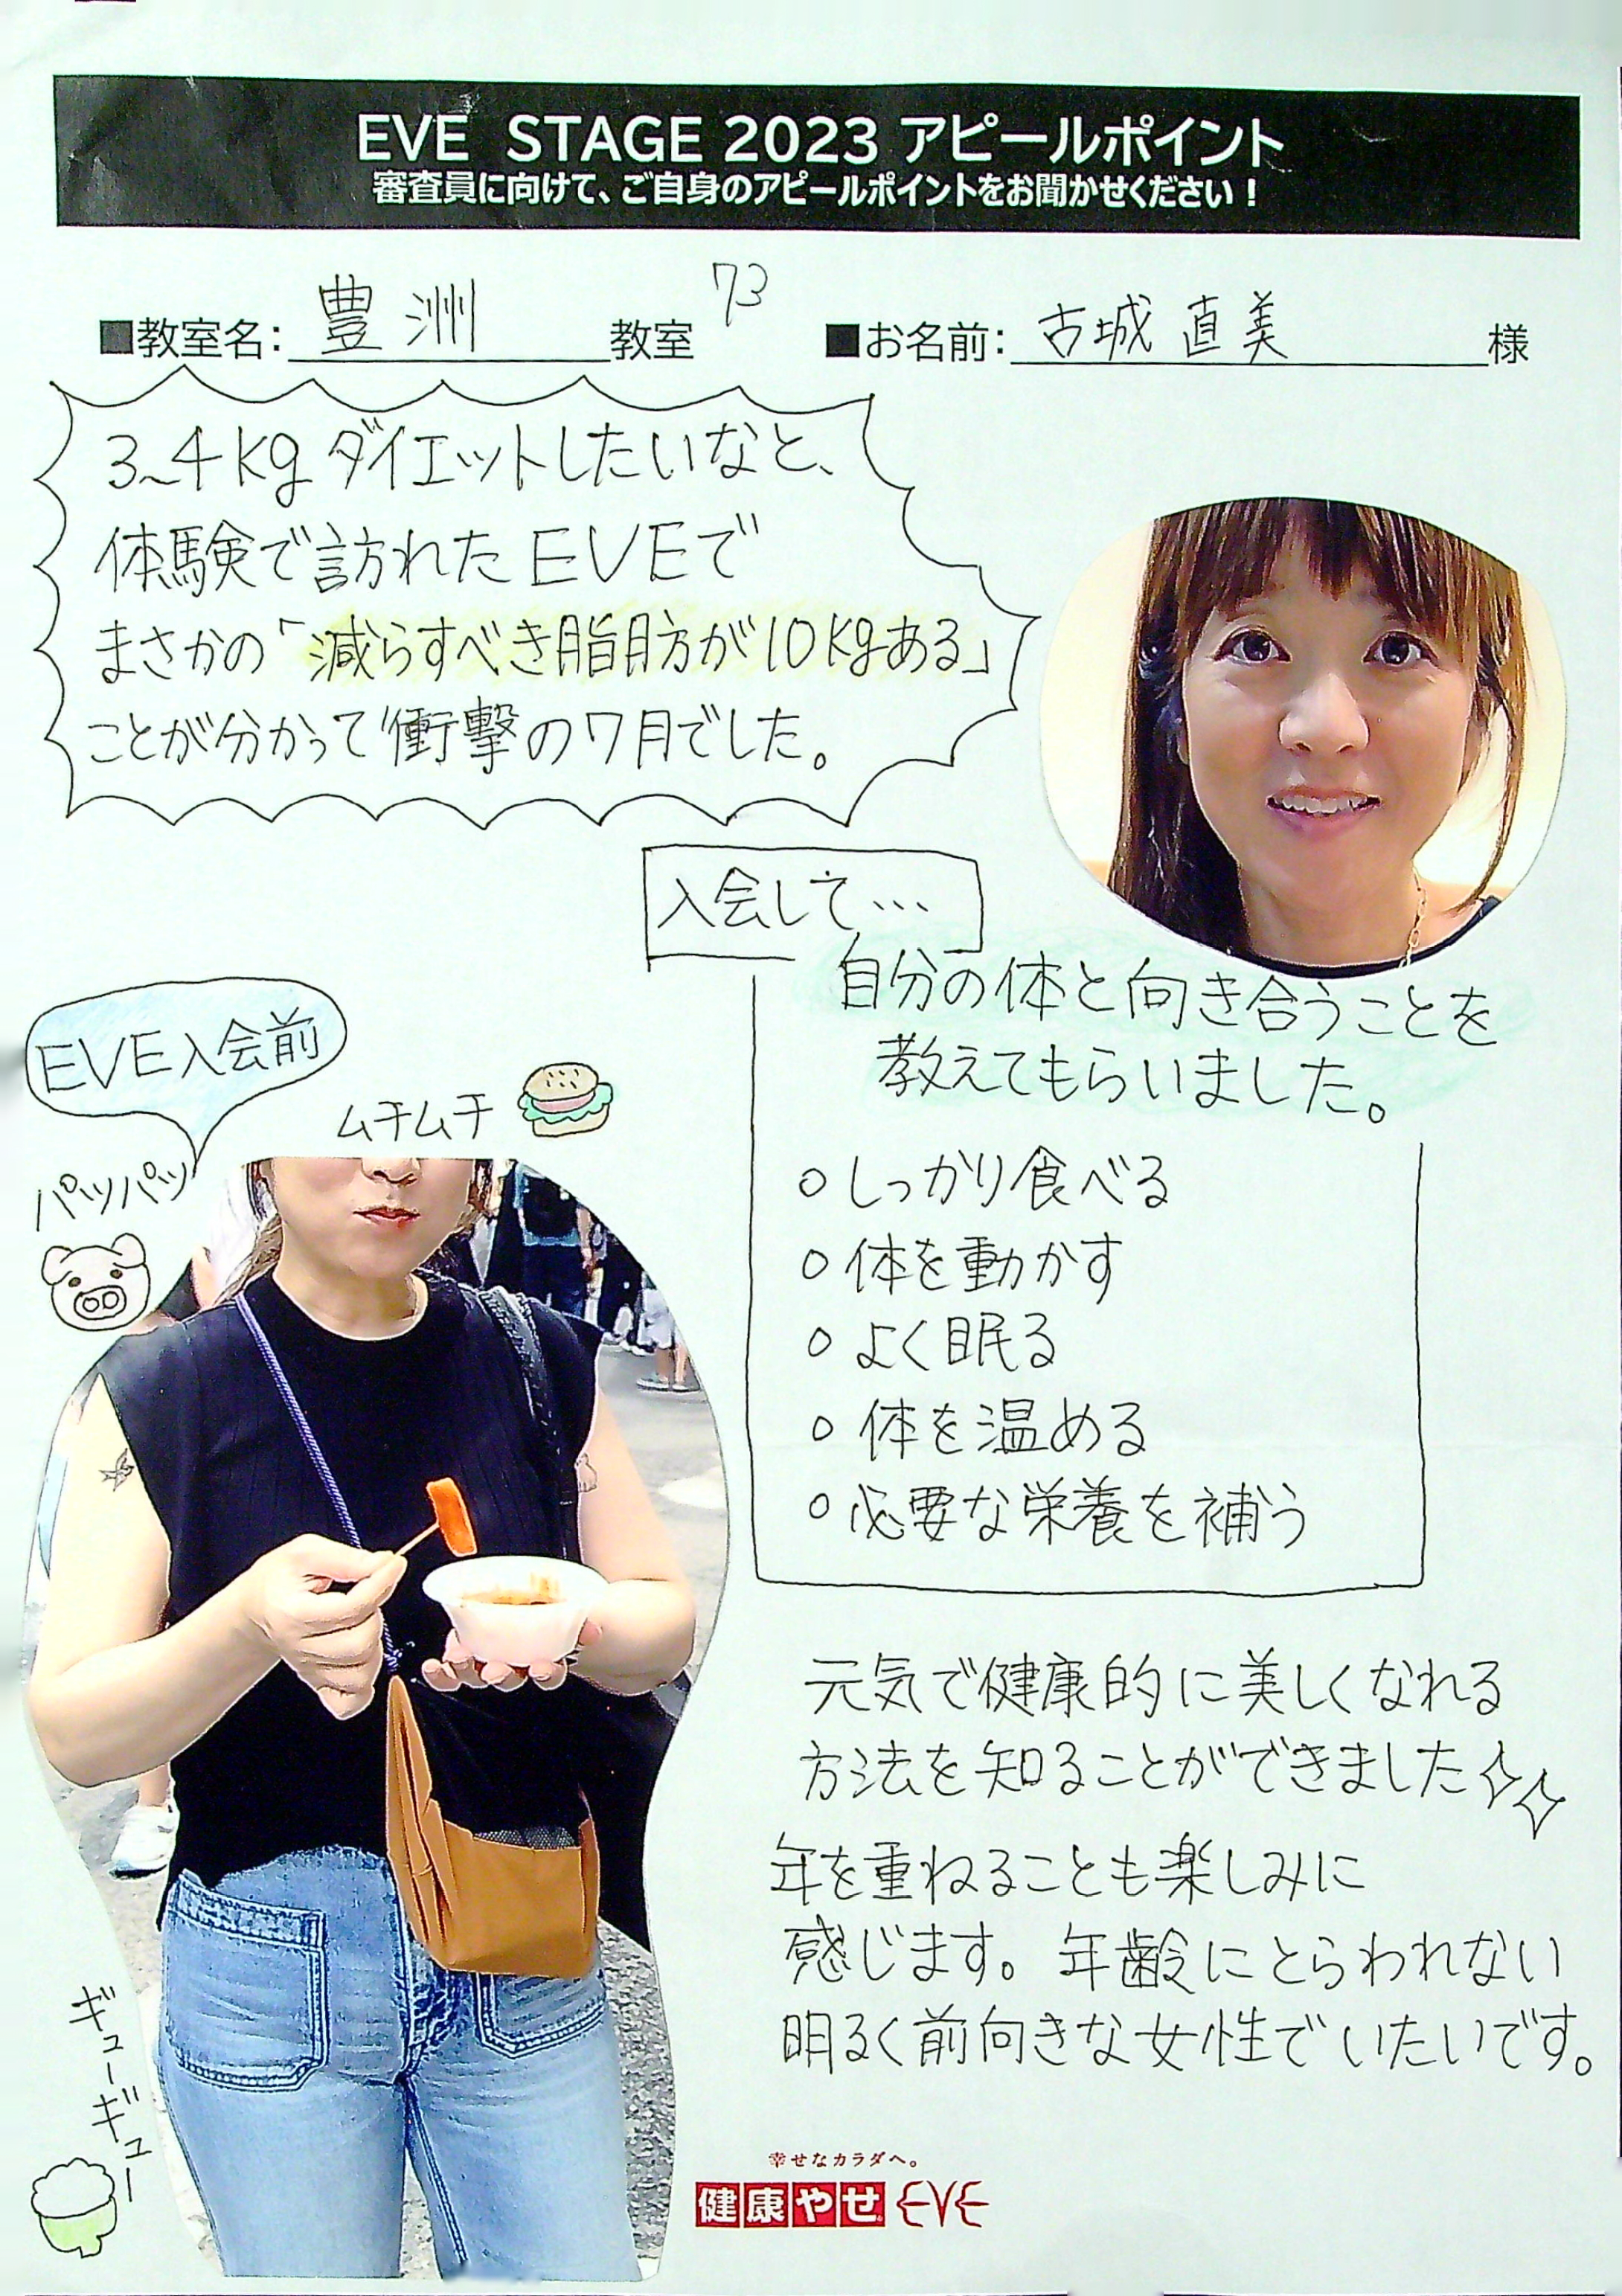 EVE STAGE 2023 アピールポイント
審査員に向けて、ご自身のアピールポイントをお聞かせください！
■教室名：豊洲教室
73
■お名前：古城 直美 様
3~4kgダイエットしたいなと、
体験で訪れたEVEで
まさかの「減らすべき脂肪が10kgある」
ことが分かって衝撃の7月でした。
入会して…
自分の体と向き合うことを
教えてもらいました。
○しっかり食べる
○体を動かす
○よく眠る
○体を温める
○必要な栄養を補う
EVE入会前
ムチムチ
パツパツ
ギューギュー
元気で健康的に美しくなれる
方法を知ることができました
年を重ねることも楽しみに
感じます。年齢にとらわれない
明るく前向きな女性でいたいです。
幸せなカラダへ。
健康やせ EVE